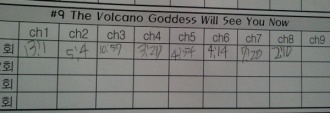 #9 The Volcano Goddess Will See You Now
ch1 ch2 ch3 ch4 ch5 ch6 ch7 ch8 ch9
회 3:11 5:4 10:57 3:20 4:54 4:14 7:20 2:10
회
회
회